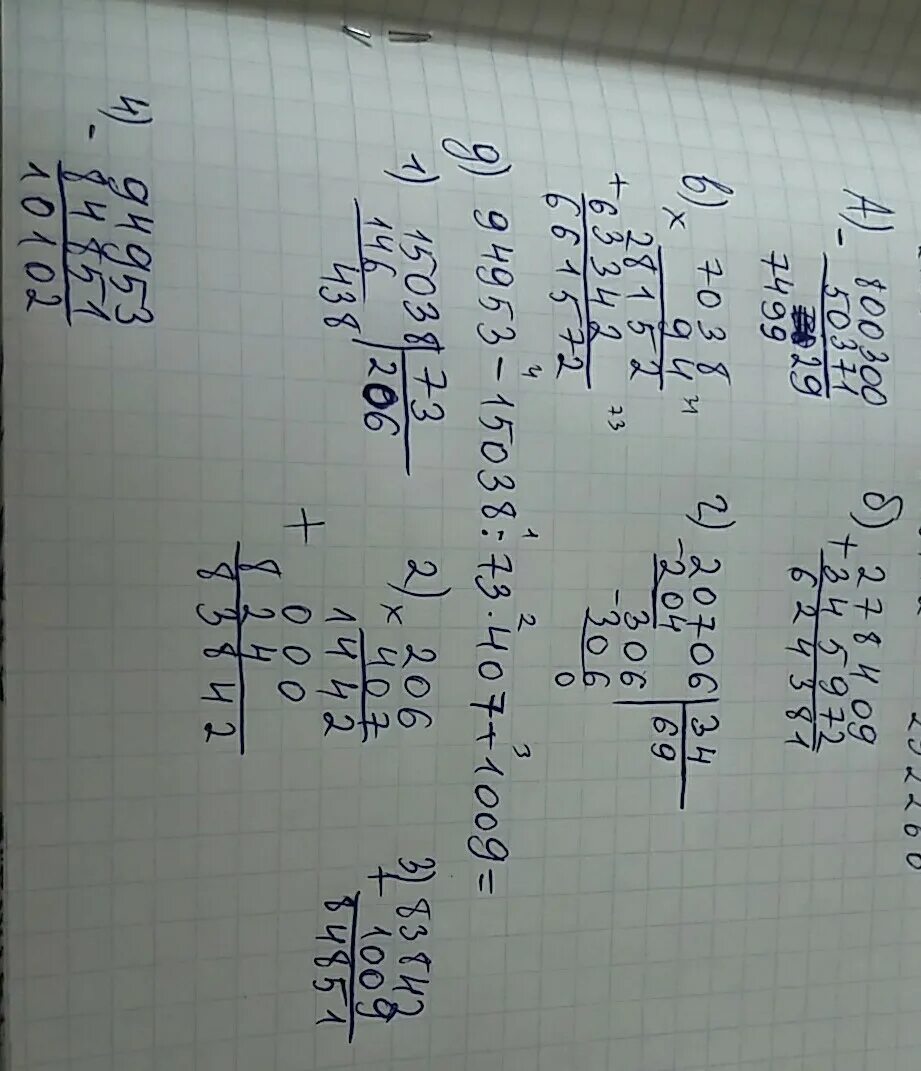 А) 800300
- 50371
749929
б) 278409
+ 345972
624381
в) 7038
× 94
28152
+ 63342
661572
31
73
г) 20706 | 34
- 204 69
306
- 306
0
4 1 2 3
д) 94953 - 15038 : 73 · 407 + 1009 =
1) 15038 | 73
146 206
438
2) 206
× 407
1442
+ 000
824
83842
3) 83842
+ 1009
84851
4) 94953
- 84851
10102